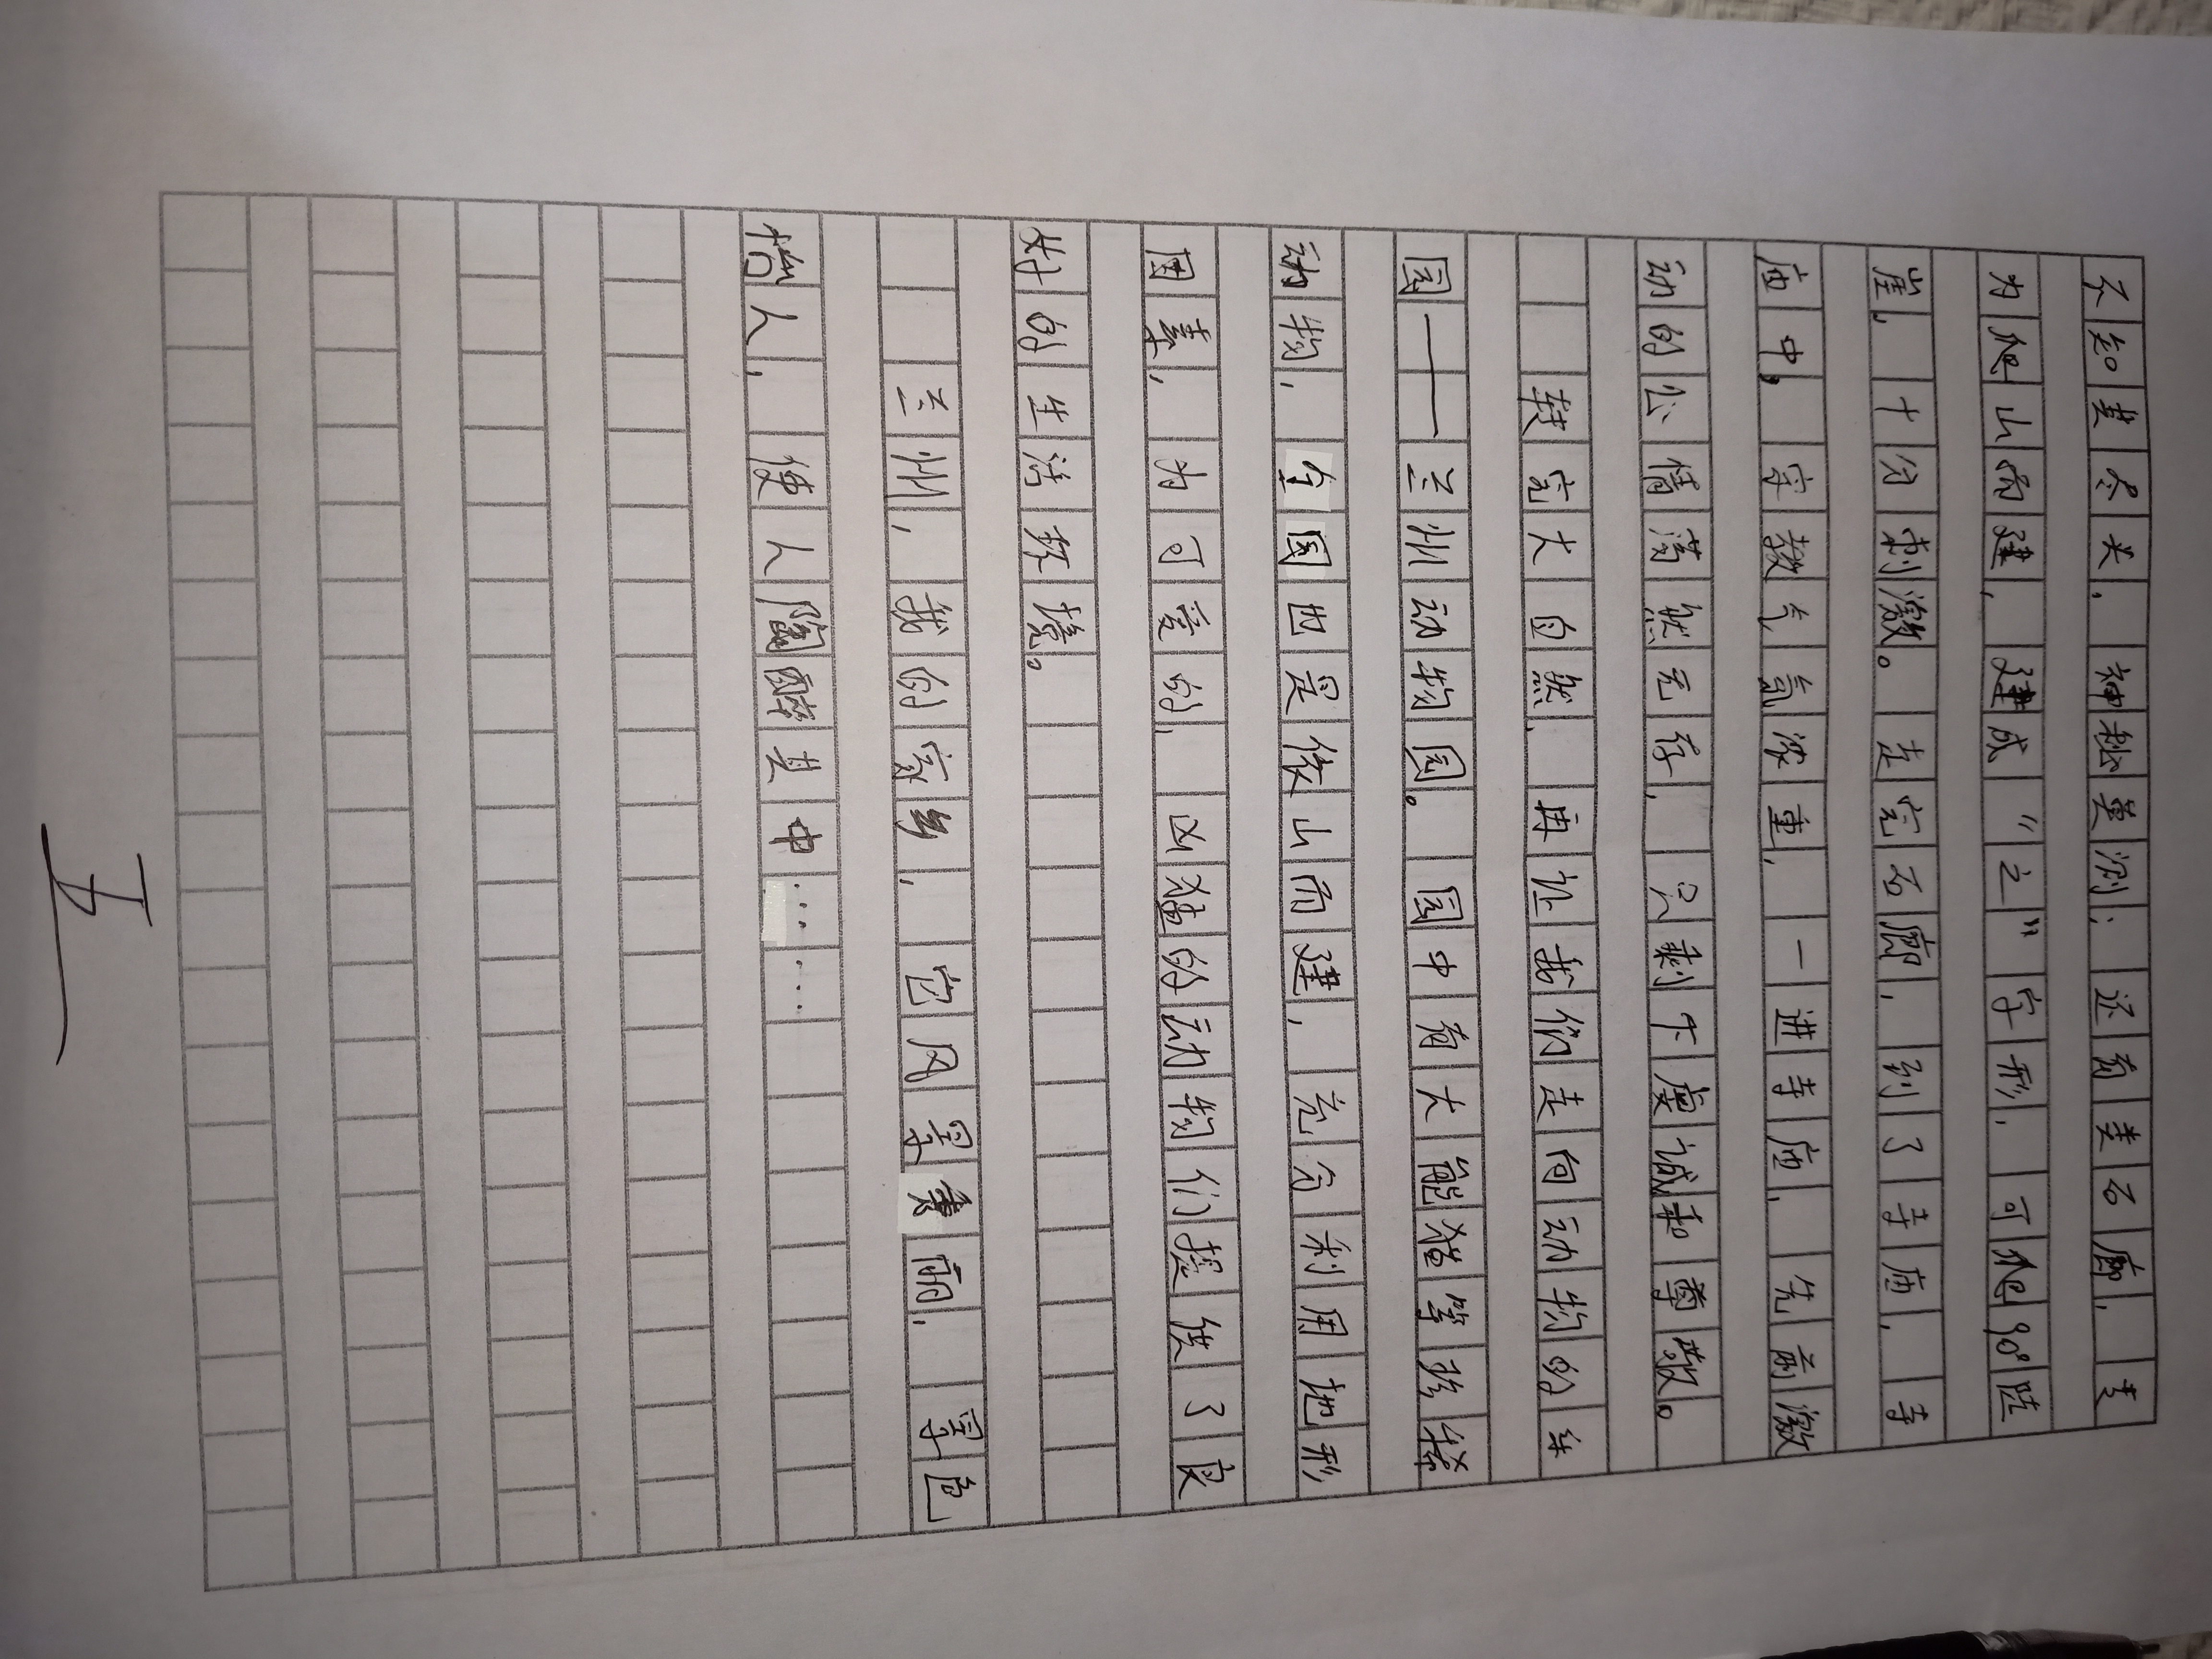 不知其尽头，神秘莫测；还有类石廊，类
为爬山而建，建成“之”字形，可爬90°陡
崖，十分刺激。走完石廊，到了寺庙，寺
庙中，宗教气氛浓重，一进寺庙，先前激
动的心情荡然无存，只剩下虔诚和尊敬。
转完大自然，再让我们走向动物的乐
园——兰州动物园。园中有大熊猫等珍稀
动物，全园也是依山而建，充分利用地形
因素，为可爱的，凶猛的动物们提供了良
好的生活环境。
兰州，我的家乡，它风景秀丽，景色
怡人，使人陶醉其中……
五